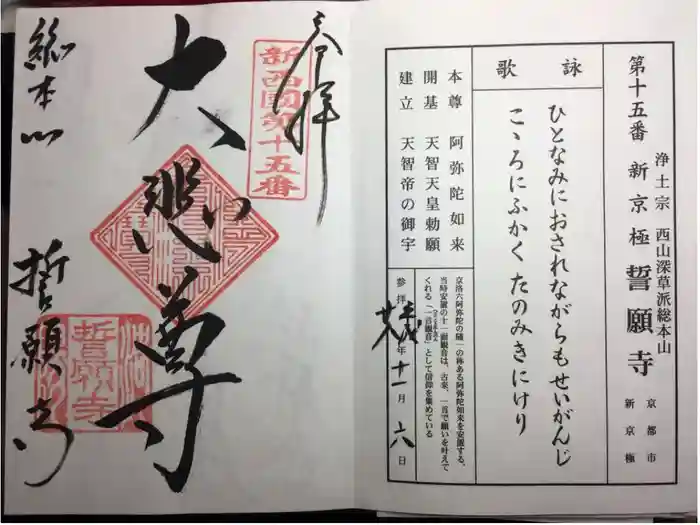 第十五番 新京極 誓願寺
浄土宗 西山深草派総本山
京都市
新京極
詠歌
ひとなみにおされながらもせいがんじ
こゝろにふかく たのみきにけり
本尊 阿弥陀如来
開基 天智天皇勅願
建立 天智帝の御宇
京洛六阿弥陀の随一の称ある阿弥陀如来を安置する、
当時安置の十一面観音は、古来、一言で願いを叶えて
くれる「一言観音」として信仰を集めている
参拝 平成 年 十一月 六日
奉拝
新西國第十五番
大悲尊
総本山 誓願寺
誓願寺